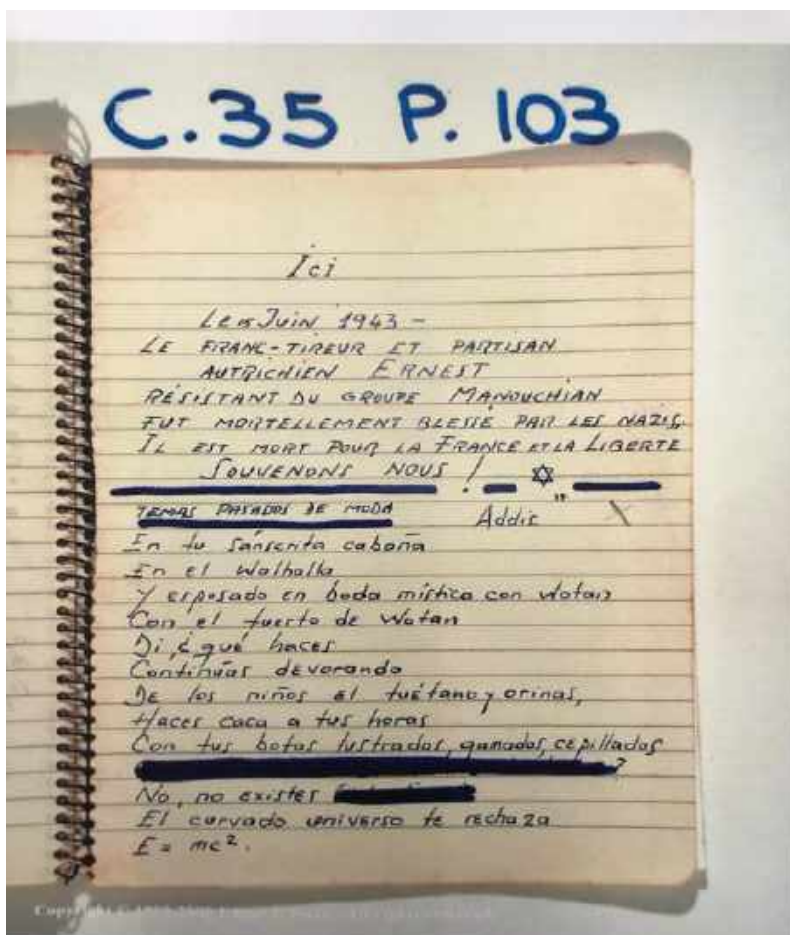 C.35 P. 103
Ici
Le 15 Juin 1943 -
LE FRANC-TIREUR ET PARTISAN
AUTRICHIEN ERNEST
RÉSISTANT DU GROUPE MANOUCHIAN
FUT MORTELLEMENT BLESSÉ PAR LES NAZIS.
IL EST MORT POUR LA FRANCE ET LA LIBERTE
SOUVENONS NOUS !
TEMAS PASADOS DE MODA
Addis
En tu sánscrita cabaña
En el Walhalla
Y esposado en boda mística con Wotan
Con el tuerto de Wotan
Di ¿qué haces
Continúas devorando
De los niños el tuétano y orinas,
Haces caca a tus horas
Con tus botas lustradas, gamadas, cepilladas
?
No, no existes
El curvado universo te rechaza
E = mc².